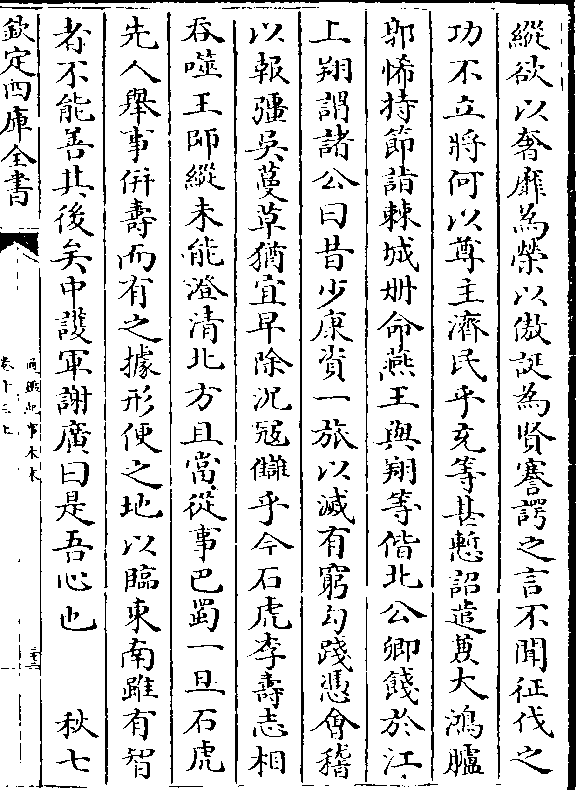 縱欲以奢靡為榮以傲誕為賢謇諤之言不聞征伐之
功不立將何以尊主濟民乎充等甚慙詔遣兼大鴻臚
郭悕持節詣棘城冊命燕王與翔等偕北公卿餞於江
上翔謂諸公曰昔少康資一旅以滅有窮勾踐憑會稽
以報彊吳蔓草猶宜早除況寇讎乎今石虎李壽志相
吞噬王師縱未能澄清北方且當從事巴蜀一旦石虎
先人舉事併壽而有之據形便之地以臨東南雖有智
者不能善其後矣中護軍謝廣曰是吾心也　　秋七
欽定四庫全書
通鑑紀事本末
卷十三上